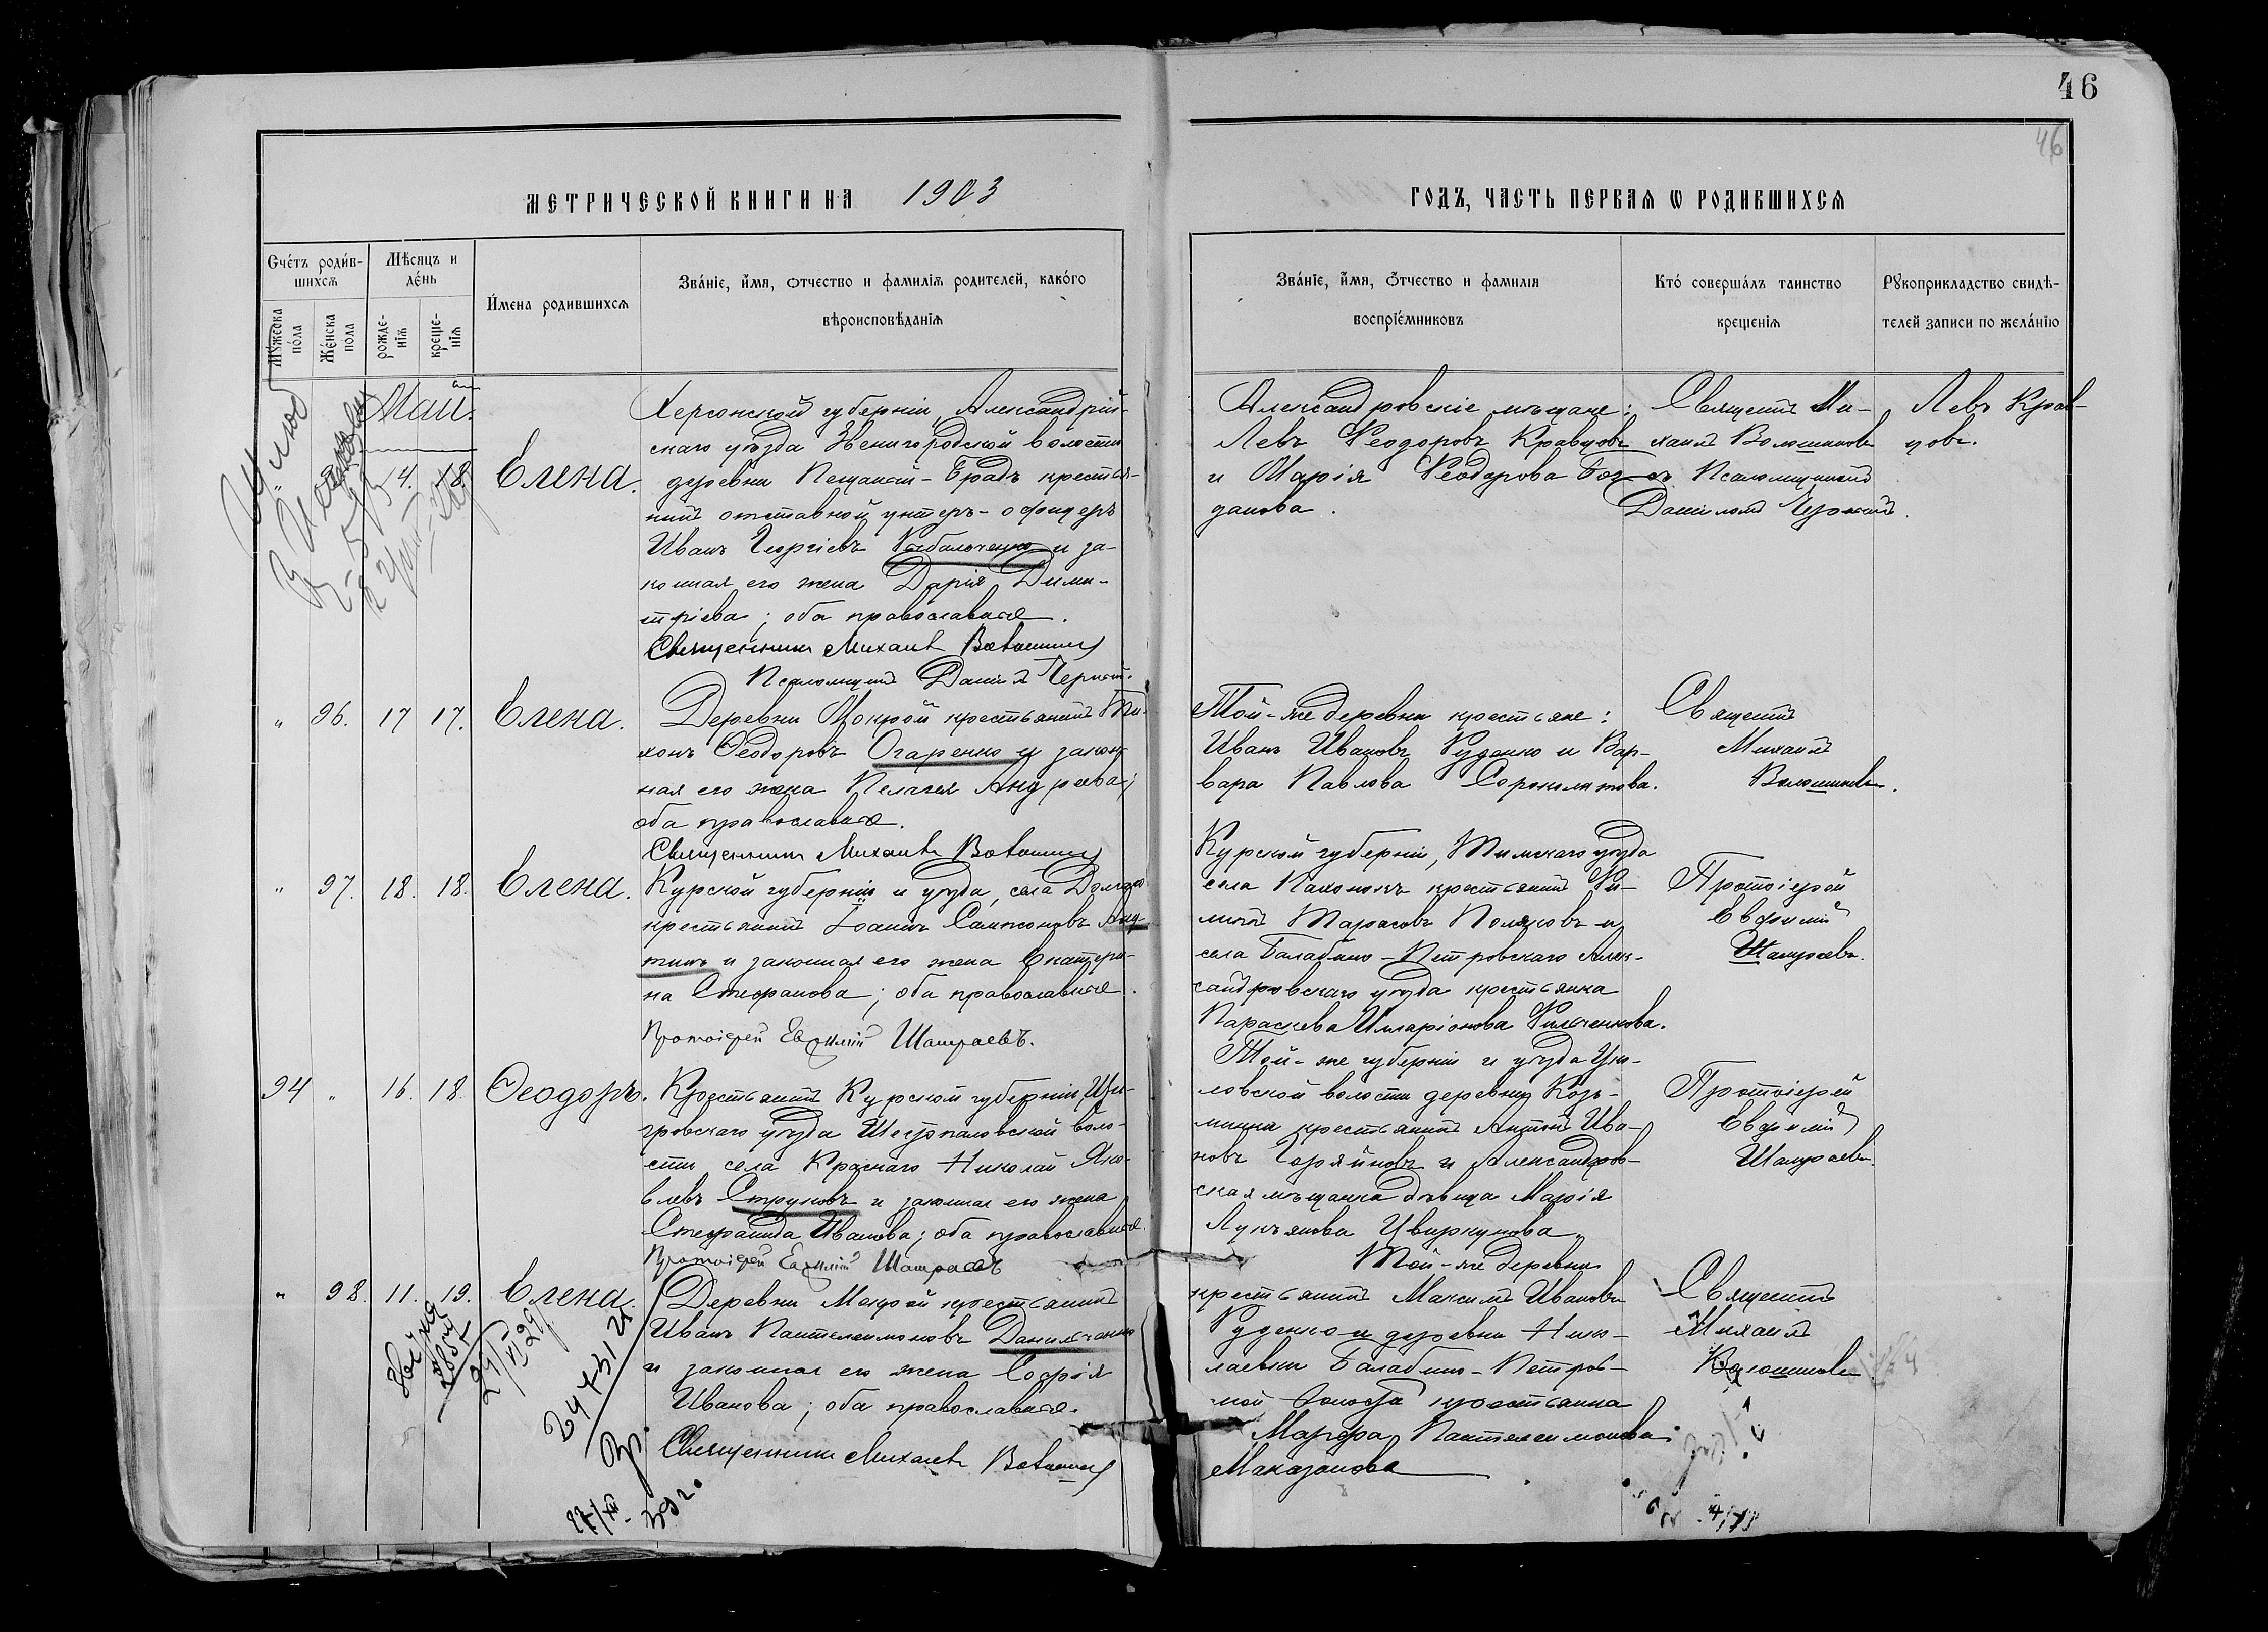 46
46
МЕТРИЧЕСКОЙ КНИГИ НА 1903
ГОДЪ, ЧАСТЬ ПЕРВАЯ Ѡ РОДИВШИХСЯ
Счётъ родив-
шихся
Мужеска
пола
Женска
пола
Мѣсяцъ и
день
рожде-
нія
креще-
нія
Имена родившихся
Званіе, имя, отчество и фамилія родителей, какого
вѣроисповѣданія
Званіе, имя, отчество и фамилія
воспріемниковъ
Кто совершалъ таинство
крещенія
Рукоприкладство свидѣ-
телей записи по желанію
Май.
" 14. 18. Елена.
Херсонской губерніи, Александрій-
скаго уѣзда Звенигородской волости
деревни Пещаный-Бродъ крестья-
нинъ отставной унтеръ-офицеръ
Иванъ Георгіевъ Рыбальченко и за-
конная его жена Дарія Дими-
тріева; оба православные.
Священникъ Михаилъ Волошиновъ
Псаломщикъ Даніилъ Черный.
Александровскіе мѣщане:
Левъ Ѳеодоровъ Кравцовъ
и Марія Ѳеодорова Бог-
данова.
Священникъ Ми-
хаилъ Волошиновъ
съ Псаломщикомъ
Даніиломъ Чернымъ.
Левъ Крав-
цовъ.
" 96. 17 17. Елена.
Деревни Мокрой крестьянинъ Ти-
хонъ Ѳеодоровъ Огаренко и закон-
ная его жена Пелагея Андреева;
оба православные.
Священникъ Михаилъ Волошиновъ
Той-же деревни крестьяне:
Иванъ Ивановъ Руденко и Вар-
вара Павлова Сороколитова.
Священникъ
Михаилъ
Волошиновъ.
" 97. 18. 18. Елена.
Курской губерніи и уѣзда, села Долгаго
крестьянинъ Іоаннъ Сампсоновъ
и законная его жена Екатери-
на Стефанова; оба православные.
Протоіерей Евфимій Шатраевъ.
Курской губерніи, Тимскаго уѣзда
села крестьянинъ Фи-
липпъ Тарасовъ Поляковъ и
села Балабино-Петровскаго Алек-
сандровскаго уѣзда крестьянка
Параскева Иларіонова Фильченкова.
Протоіерей
Евфимій
Шатраевъ.
94 " 16. 18. Ѳеодоръ.
Крестьянинъ Курской губерніи, Щи-
гровскаго уѣзда Шестопаловской воло-
сти села Краснаго Николай Яко-
влевъ Струковъ и законная его жена
Стефанида Иванова; оба православные.
Протоіерей Евфимій Шатраевъ
Той-же губерніи и уѣзда
ловской волости деревни Козь-
минки крестьянинъ Антоній Ива-
новъ Горяйновъ и Александров-
ская мѣщанка дѣвица Марія
Лукьянова Цвиркунова.
Протоіерей
Евфимій
Шатраевъ.
" 98. 11. 19. Елена.
Деревни Мокрой крестьянинъ
Иванъ Пантелеимоновъ Данильченко
и законная его жена Софія
Иванова; оба православные.
Священникъ Михаилъ Волошиновъ
Той-же деревни
крестьянинъ Максимъ Ивановъ
Руденко и деревни Нико-
лаевки Балабино-Петров-
ской волости крестьянка
Марфа Пантелеимонова
Маказанова
Священникъ
Михаилъ
Волошиновъ.